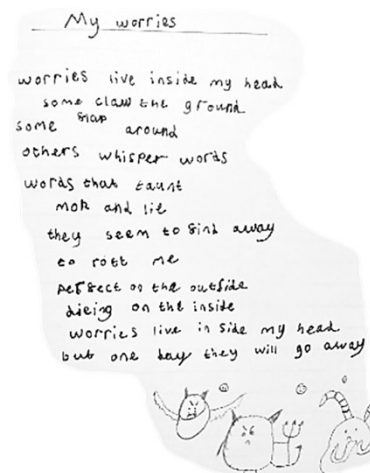 My worries
worries live inside my head
some claw the ground
some flap around
others whisper words
words that taunt
mok and lie
they seem to find away
to rott me
perfect on the outside
dieing on the inside
worries live in side my head
but one day they will go away